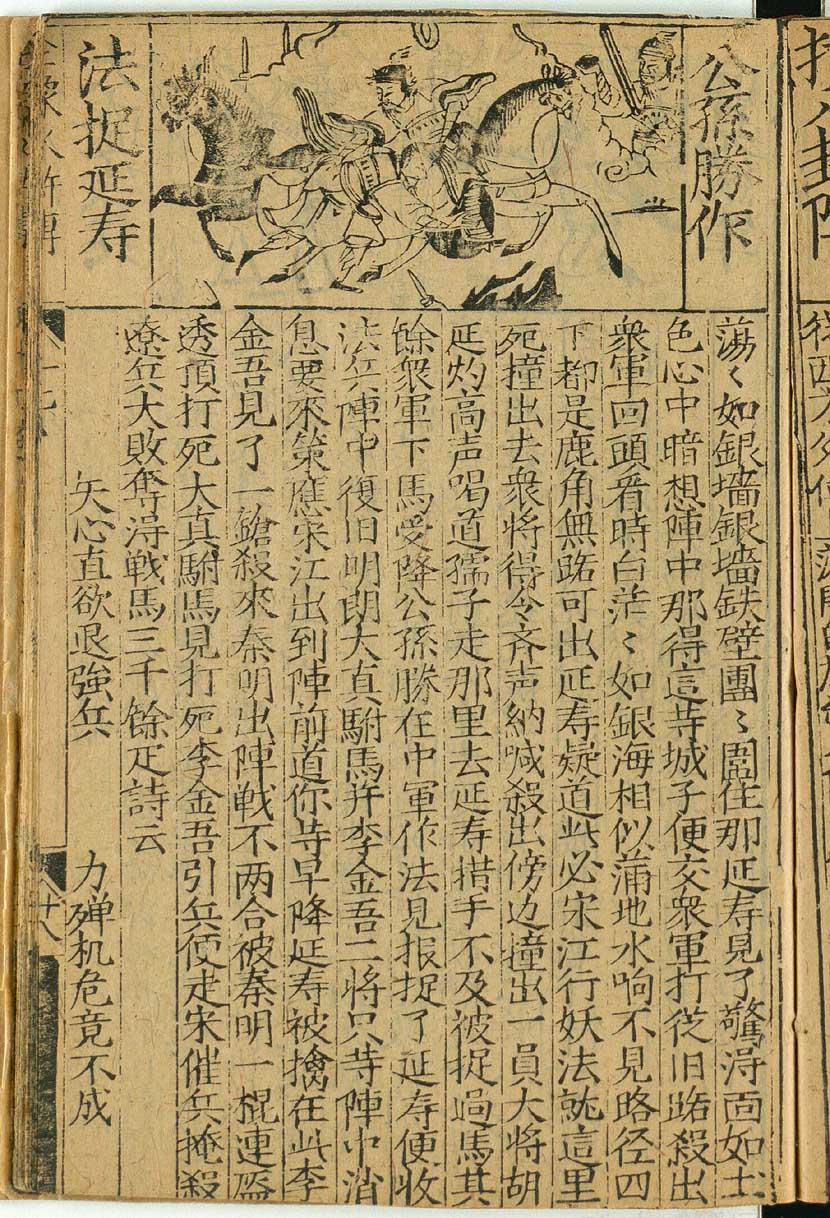 公孫勝作
法捉延寿
蕩〻如銀墻銀墻鉄壁團〻圍住那延寿見了驚淂面如土
色心中暗想陣中那得這䓁城子便交衆軍打従旧路殺出
衆軍回頭看時白茫〻如銀海相似蒲地水响不見路径四
下都是鹿角無路可出延寿疑道此必宋江行妖法就這里
死撞出去衆将得令斉声納喊殺出傍边撞出一員大将胡
延灼高声喝道孺子走那里去延寿措手不及被捉過馬其
餘衆軍下馬受降公孫勝在中軍作法見报捉了延寿便收
法兵陣中復旧明朗大真駙馬并李金吾二将只䓁陣中消
息要來策應宋江出到陣前道你䓁早降延寿被擒在此李
金吾見了一鎗殺來秦明出陣戦不两合被秦明一棍連盔
透頂打死大真駙馬見打死李金吾引兵便走宋催兵掩殺
遼兵大敗奪淂戦馬三千餘疋詩云
矢心直欲退強兵
力殫机危竟不成